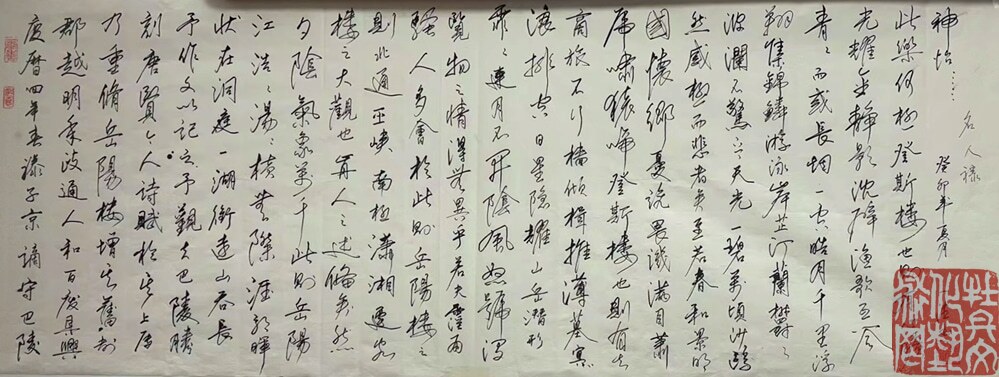 慶曆四年春滕子京謫守巴陵
郡越明年政通人和百廢具興
乃重脩岳陽樓增其舊制
刻唐賢今人詩賦於其上屬
予作文以記之予觀夫巴陵勝
狀在洞庭一湖銜遠山吞長
江浩々湯々橫無際涯朝暉
夕陰氣象萬千此則岳陽
樓之大觀也前人之述備矣然
則北通巫峽南極瀟湘遷客
騷人多會於此則岳陽樓之
覽物之情得無異乎若夫霪雨
霏々連月不開陰風怒號濁
浪排空日星隱耀山岳潛形
商旅不行檣傾楫摧薄暮冥
虎嘯猿啼登斯樓也則有去
國懷鄉憂讒畏譏滿目蕭
然感極而悲者矣至若春和景明
波瀾不驚上下天光一碧萬頃沙鷗
翔集錦鱗游泳岸芷汀蘭鬱々
青々而或長烟一空皓月千里浮
光耀金靜影沈璧漁歌互答
此樂何極登斯樓也
神怡……
癸卯年夏月